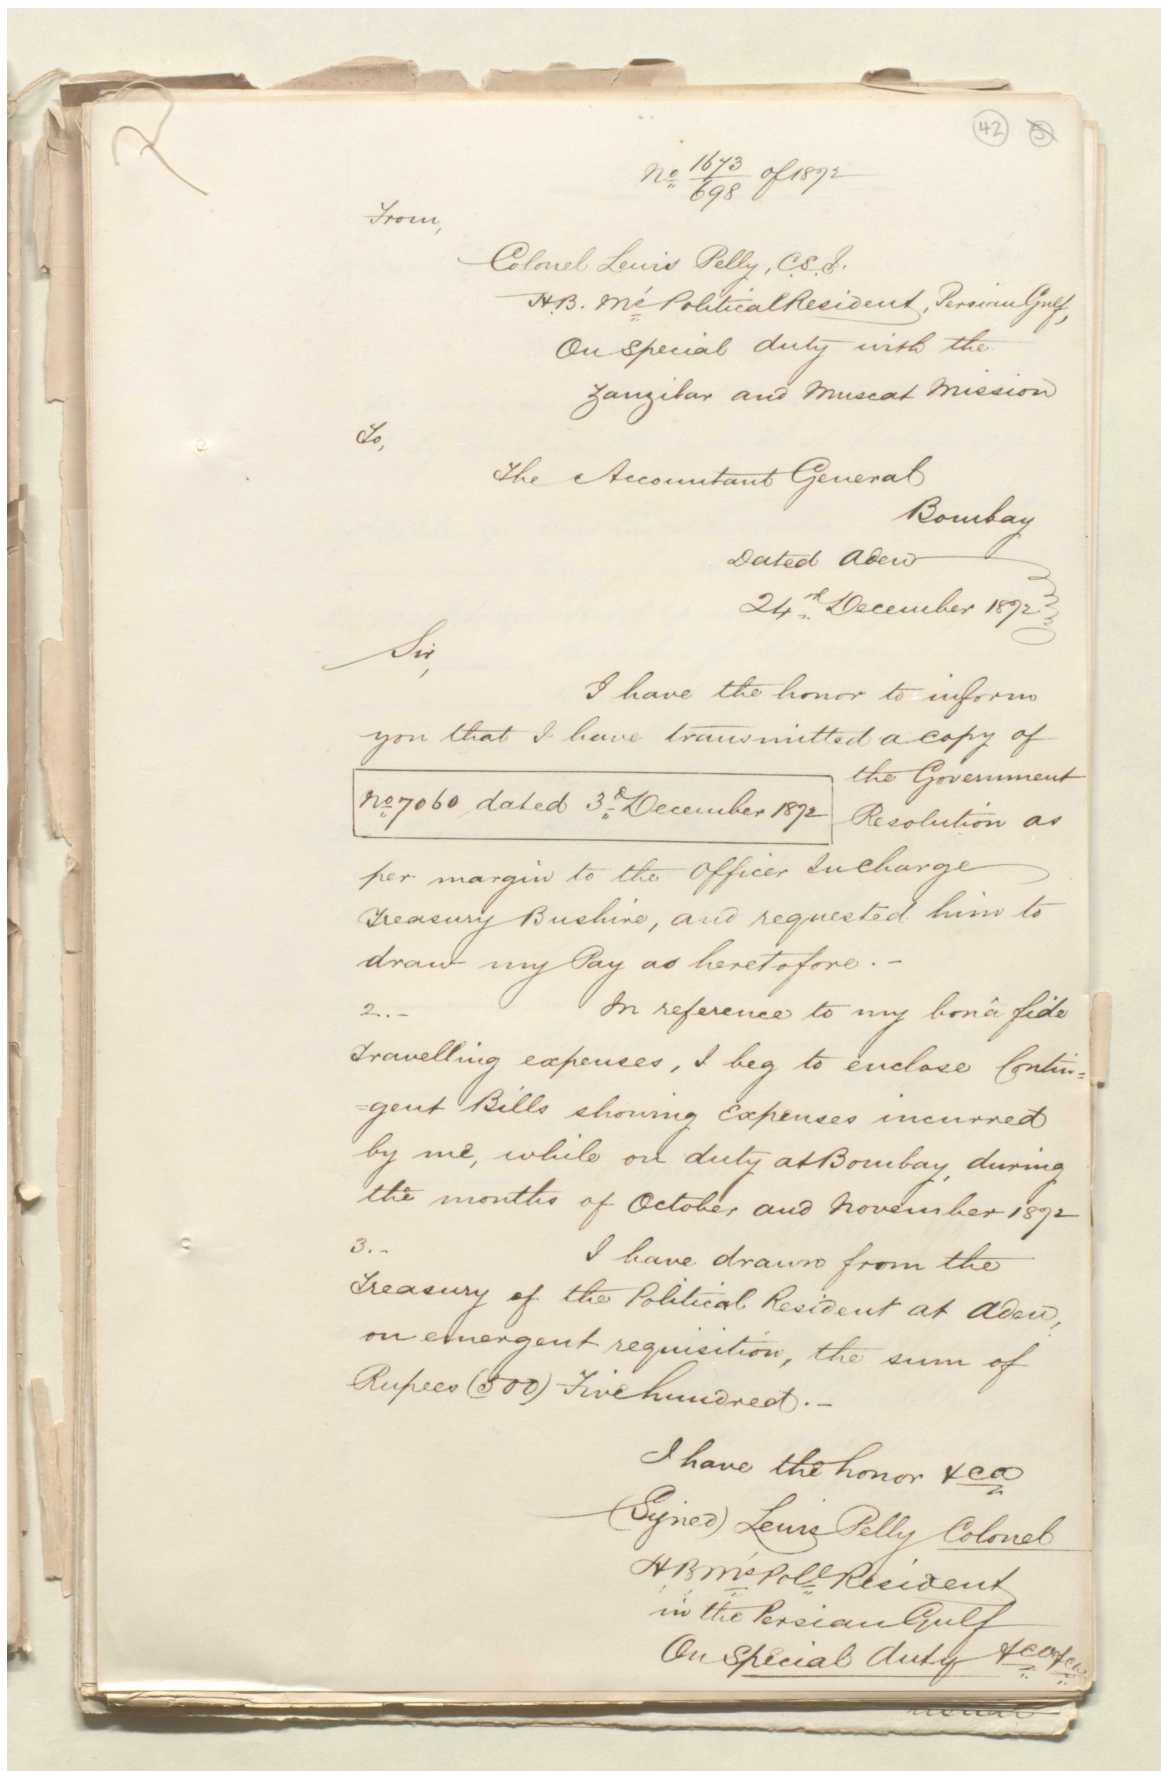 42 5
No 1673/698 of 1872
From,
Colonel Lewis Pelly, C.S.I.
H.B. M's Political Resident, Persian Gulf,
On special duty with the
Zanzibar and Muscat Mission
To,
The Accountant General
Bombay
Dated Aden
24th December 1872
Sir,
I have the honor to inform
you that I have transmitted a copy of
the Government
No 7060 dated 3d December 1872
Resolution as
per margin to the Officer In charge
Treasury Bushire, and requested him to
draw my Pay as heretofore. -
2. - In reference to my bonâ fide
travelling expenses, I beg to enclose Contin=
=gent Bills showing Expenses incurred
by me, while on duty at Bombay, during
the months of October and November 1872
3. - I have drawn from the
Treasury of the Political Resident at Aden,
on emergent requisition, the sum of
Rupees (500) Five hundred. -
I have the honor &ca
(Signed) Lewis Pelly Colonel
H B M's Poll Resident
in the Persian Gulf
On special duty &ca &ca